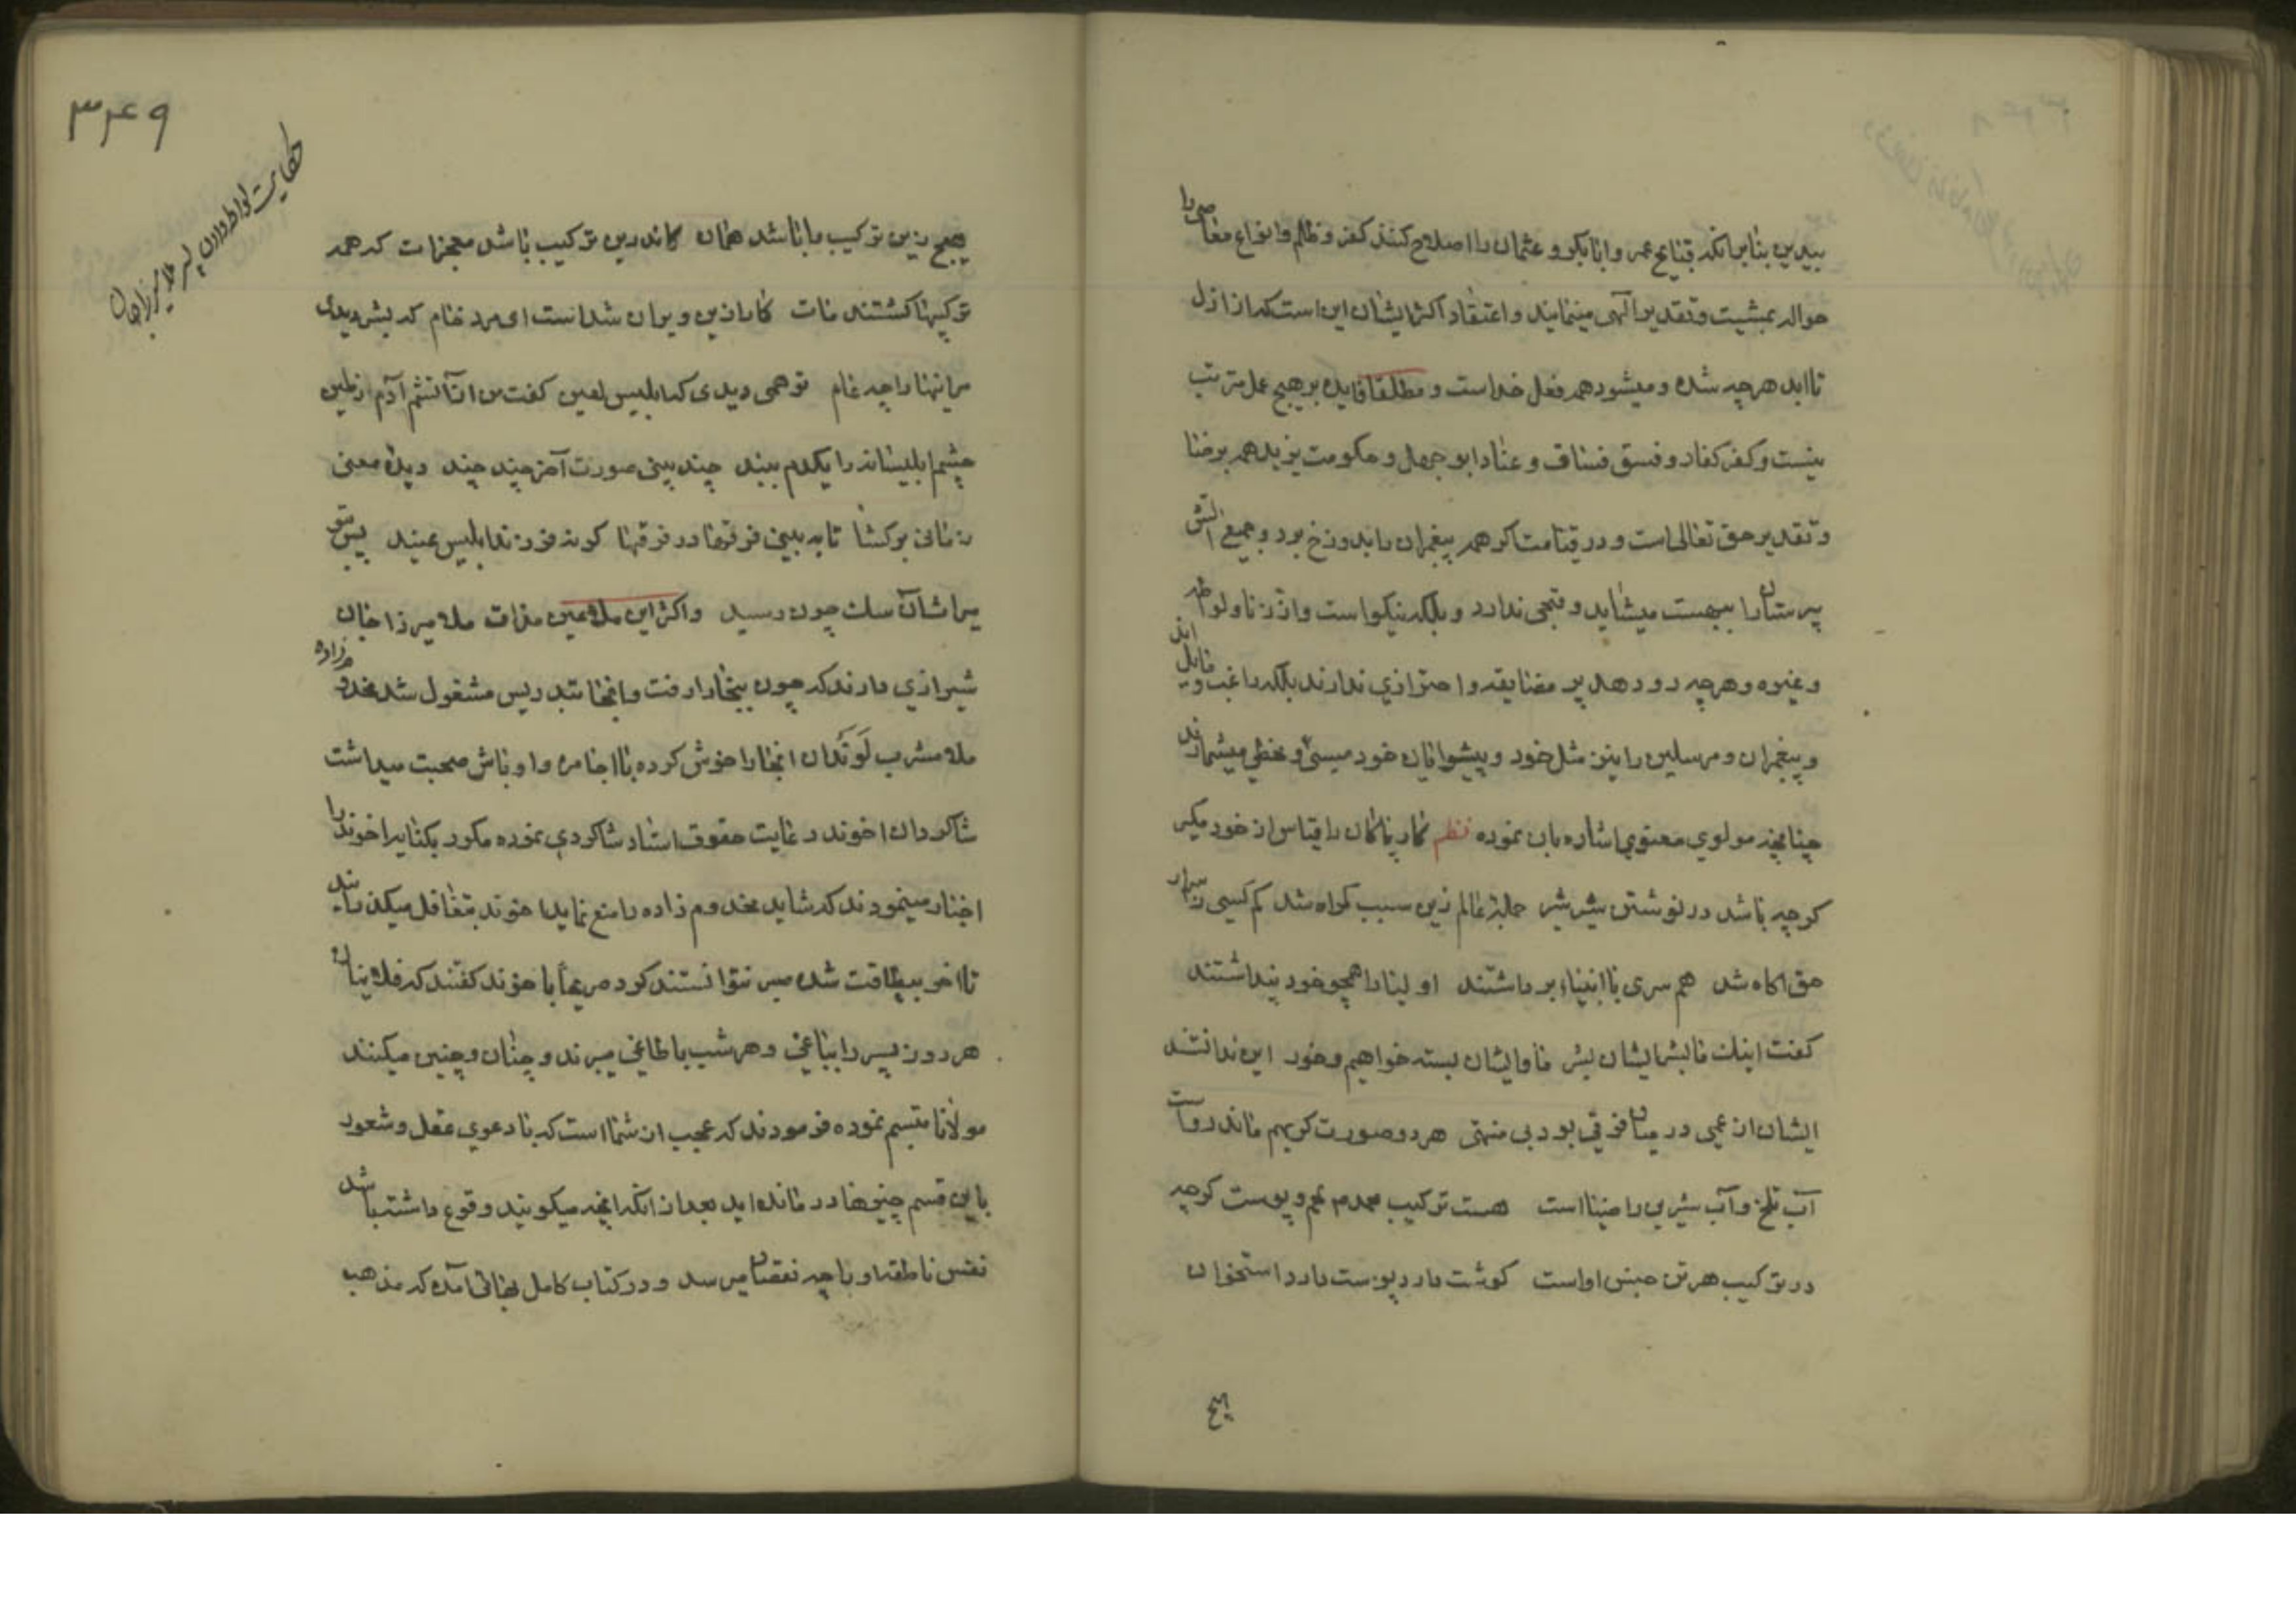 بیدین بنابرانکه قبایح عمر و ابابکر و عثمان را اصلاح کنند کفر و ظلم و انواع معاصی را
حواله بمشیت و تقدیر الهی مینمایند و اعتقاد اکثر ایشان این است که از ازل
تا ابد هرچه شده و میشود همه فعل خداست و مطلقا فایده بر هیچ عمل مترتب
نیست و کفر کفار و فسق فساق و عناد ابوجهل و حکومت یزید همه برضا
و تقدیر حق تعالی است و در قیامت اگر همه پیغمبران را بدوزخ برد و جمیع آتش
پرستان را ببهشت میشاید و قبحی ندارد و بلکه نیکو است و از زنا و لواطه
و غیره و هرچه رو دهد پر مضایقه و احترازی ندارند بلکه راغب و مایل اند
و پیغمبران و مرسلین را نیز مثل خود و پیشوایان خود میسئ و مخطی میشمارند
چنانچه مولوی معنوی اشاره بان نموده نظم کار پاکان را قیاس از خود مگیر
کرچه باشد در نوشتن شیر شیر جمله عالم زین سبب کمراه شد کم کسی ز ابدال
حق اکاه شد همسری با انبیاء برداشتند اولیا را همچو خود پنداشتند
کفت اینک ما بشر ایشان بشر ما و ایشان بسته خوابیم و خور این ندانستند
ایشان از عمی در میان فرقی بود بی منتهی هر دو صورت کر بهم ماند رواست
آب تلخ و آب شیرین را صفا است هست ترکیب محمد لحم و پوست کرچه
در ترکیب هر تن جنس او است کوشت دارد پوست دارد استخوان
هیچ
۳۴۹
حکایت لواط دادن پسر ملا میرزاجان
هیچ زین ترکیب را باشد همان کاندرین ترکیب باشد معجزات که همه
ترکیبها کشتند مات کار ازین ویران شدست ای مرد خام که بشر دیدی
مر اینها را چه عام تو همی دیدی که ابلیس لعین کفت من از آتشم آدم ز طین
چشم ابلیسانه را یکدم ببند چند بینی صورت آخر چند چند دیده معنی
زمانی برکشا تا به بینی فرقها در فرقها کر نه فرزند ابلیس عنید پس بتو
میراث آن سک چون رسید و اکثر این ملاعین مذاق ملا میرزا جان
شیرازی دارند که چون ببخارا رفت و انجا بتدریس مشغول شد مخدوم زاده
ملا مشرب لَوَندان انجا را خوش کرده با اجامره و اوباش صحبت میداشت
شاکردان اخوند رعایت حقوق استاد شاکردی نموده مکرر بکنایه اخوند را
اخبار مینمودند که شاید مخدوم زاده را منع نماید اخوند بتغافل میکذرانید
تا اخر بیطاقت شده صبر نتوانستند کرد صریحاً باخوند کفتند که فلاینان
هر روز پسر را بباغی و هر شب باطاغی میبرند و چنان و چنین میکنند
مولانا متبسم نموده فرمودند که عجب از شما است که با دعوی عقل و شعور
باین قسم چیزها در مانده اید بعد از انکه انچه میکویند وقوع داشته باشد
نفس ناطقه او را چه نقصان میرسد و در کتاب کامل بهائی آمده که مذهب